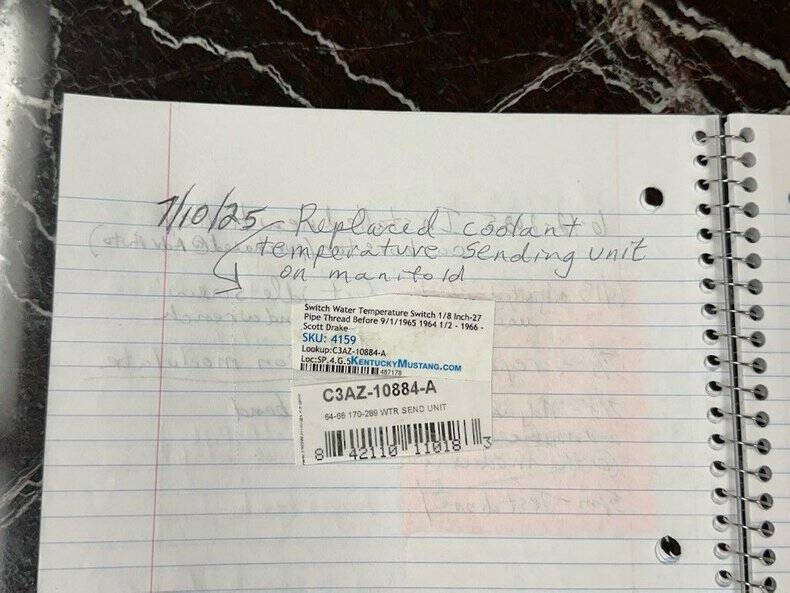 7/10/25 Replaced coolant
temperature sending unit
on manifold
Switch Water Temperature Switch 1/8 Inch-27
Pipe Thread Before 9/1/1965 1964 1/2 - 1966 -
Scott Drake
SKU: 4159
Lookup:C3AZ-10884-A
Loc:SP.4.G.5 KENTUCKYMUSTANG.COM
487178
C3AZ-10884-A
64-66 170-289 WTR SEND UNIT
8 42110 11018 3